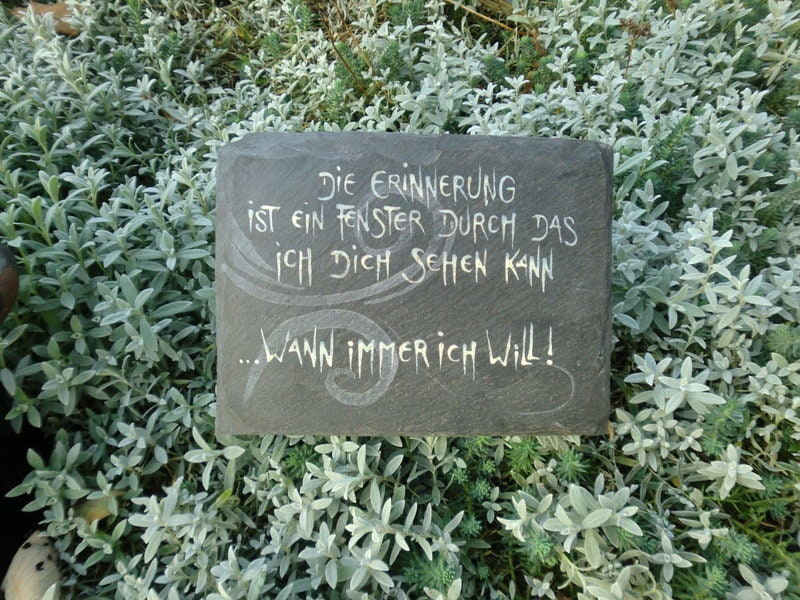 DiE ERiNNERUNG
iST EiN FENSTER DURCH DAS
iCH DiCH SEHEN KANN
...WANN iMMER iCH WiLL!